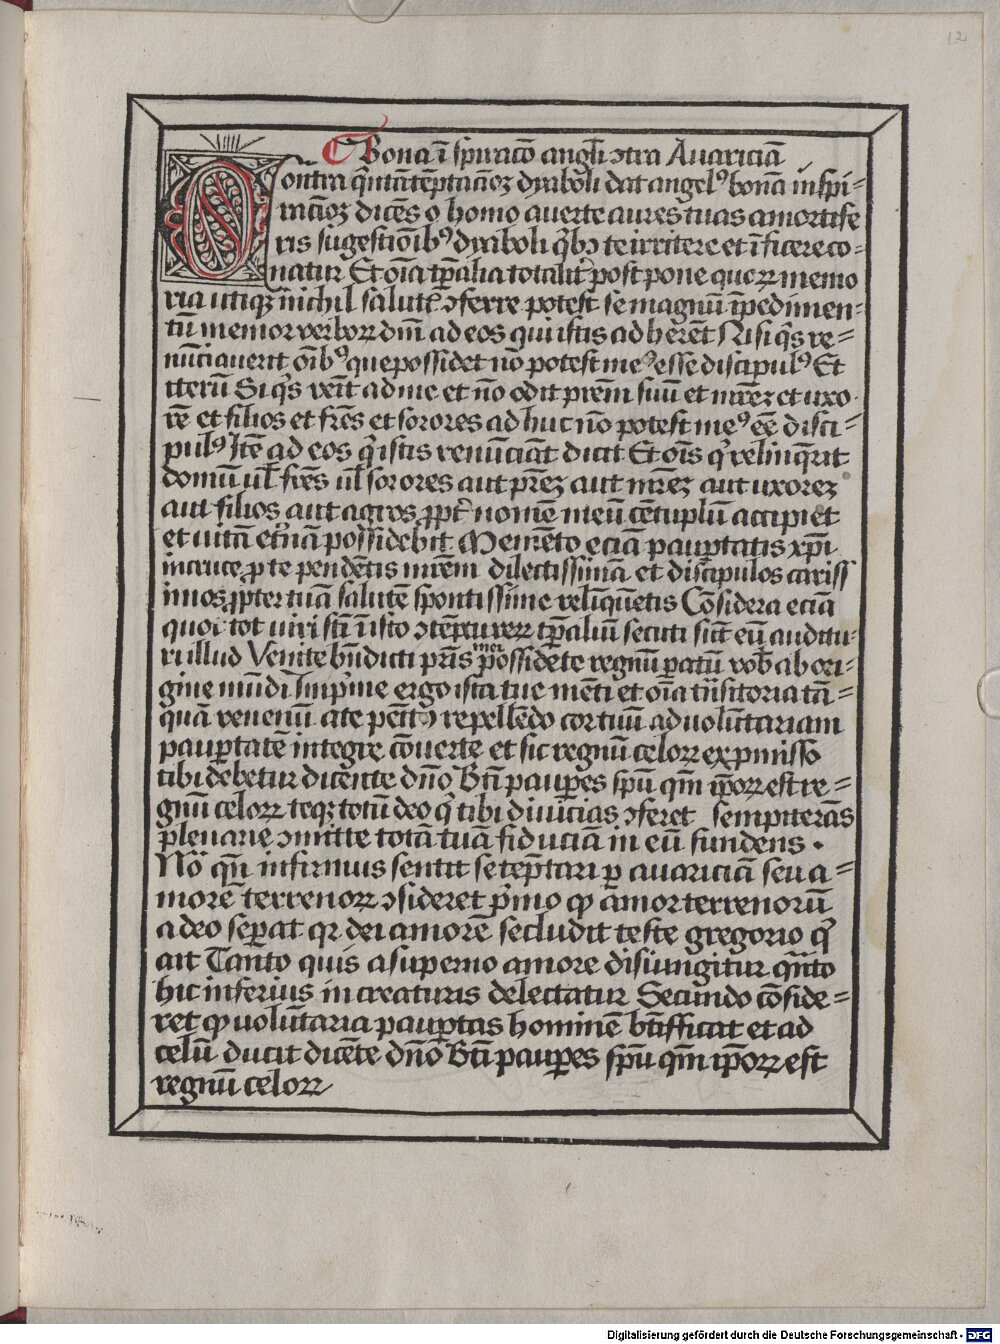 12
Bona ī spiracō angeli ɔtra Avariciā
ontra quintā tēptacioꝫ dyaboli dat angelꝰ bonā inspi=
racioꝫ dicēs o homo averte aures tuas a mortife
ris sugestiōibꝰ dyaboli q̄bꝫ te irritere et īficere co=
natur Et oīa tp̄alia totalit̓ post pone quoꝝ memo
ria utiqꝫ nichil salut̄ ɔferre potest se magnū īpedimen=
tū memor verboꝝ dn̄i ad eos qui istis adherēt Nisi q̓s re=
nūciaverit oīb̓ꝰ que possidet nō potest meꝰ esse discipulꝰ Et
iterū Si q̓s venit ad me et nō odit prēm suū et mrēꝫ et uxo-
rē et filios et frēs et sorores ad huc nō potest meꝰ eē disci=
pulꝰ Itē ad eos q̓ istis renūciāt dicit Et oīs q̓ relinq̄rit
domū ul̄ frēs ul̄ sorores aut prēꝫ aut mrēꝫ aut uxoreꝫ
aut filios aut agros ꝓpt̓ nomē meū cētuplū accipiet
et uitā et̓nā possidebit Memēto eciā paup̱tatis xp̄i
in cruce ꝓ te pendētis mrēm dilectissimā et discipulos cariss
imos ꝓpter tuā salutē spontissime relīquētis Cōsidera eciā
quot tot uiri st̄i ī isto ɔtēptu reꝝ tp̄aliū secuti sūt eū auditu-
ri illud Venite bn̄dicti pr̄is mei possidete regnū paratū vob̄ ab ori-
gine mūdi Imp̓me ergo ista tue mēti et oīa trāsitoria tā=
quā venenū a te penitꝰ repellēdo cor tuū ad volūtariam
paup̱tatē integre cōverte et sic regnū celoꝝ ex p̱misso
tibi debetur dicente dn̄o Bt̄i paup̱es spū qm̄ ip̄oꝝ est re=
gnū celoꝝ teqꝫ totū deo q̓ tibi diuicias ɔferet sempiternās
plenarie ɔmitte totā tuā fiduciā in eū fundens .
Nō qn̄ infirmus sentit se tēptari p̱ avariciā seu a=
morē terrenoꝝ ɔsideret p̓mo ꝙ amor terrenorū
a deo sep̱at qr dei amorē secludit teste gregorio q̓
ait Tanto quis a superno amore disiungitur qn̄to
hic inferius in creaturis delectatur Secundo cōside=
ret ꝙ volūtaria paup̱tas hominē bt̄ifficat et ad
celū ducit dicēte dn̄o Bt̄i paup̱es spū qm̄ ip̄oꝝ est
regnū celoꝝ
Digitalisierung gefördert durch die Deutsche Forschungsgemeinschaft - DFG